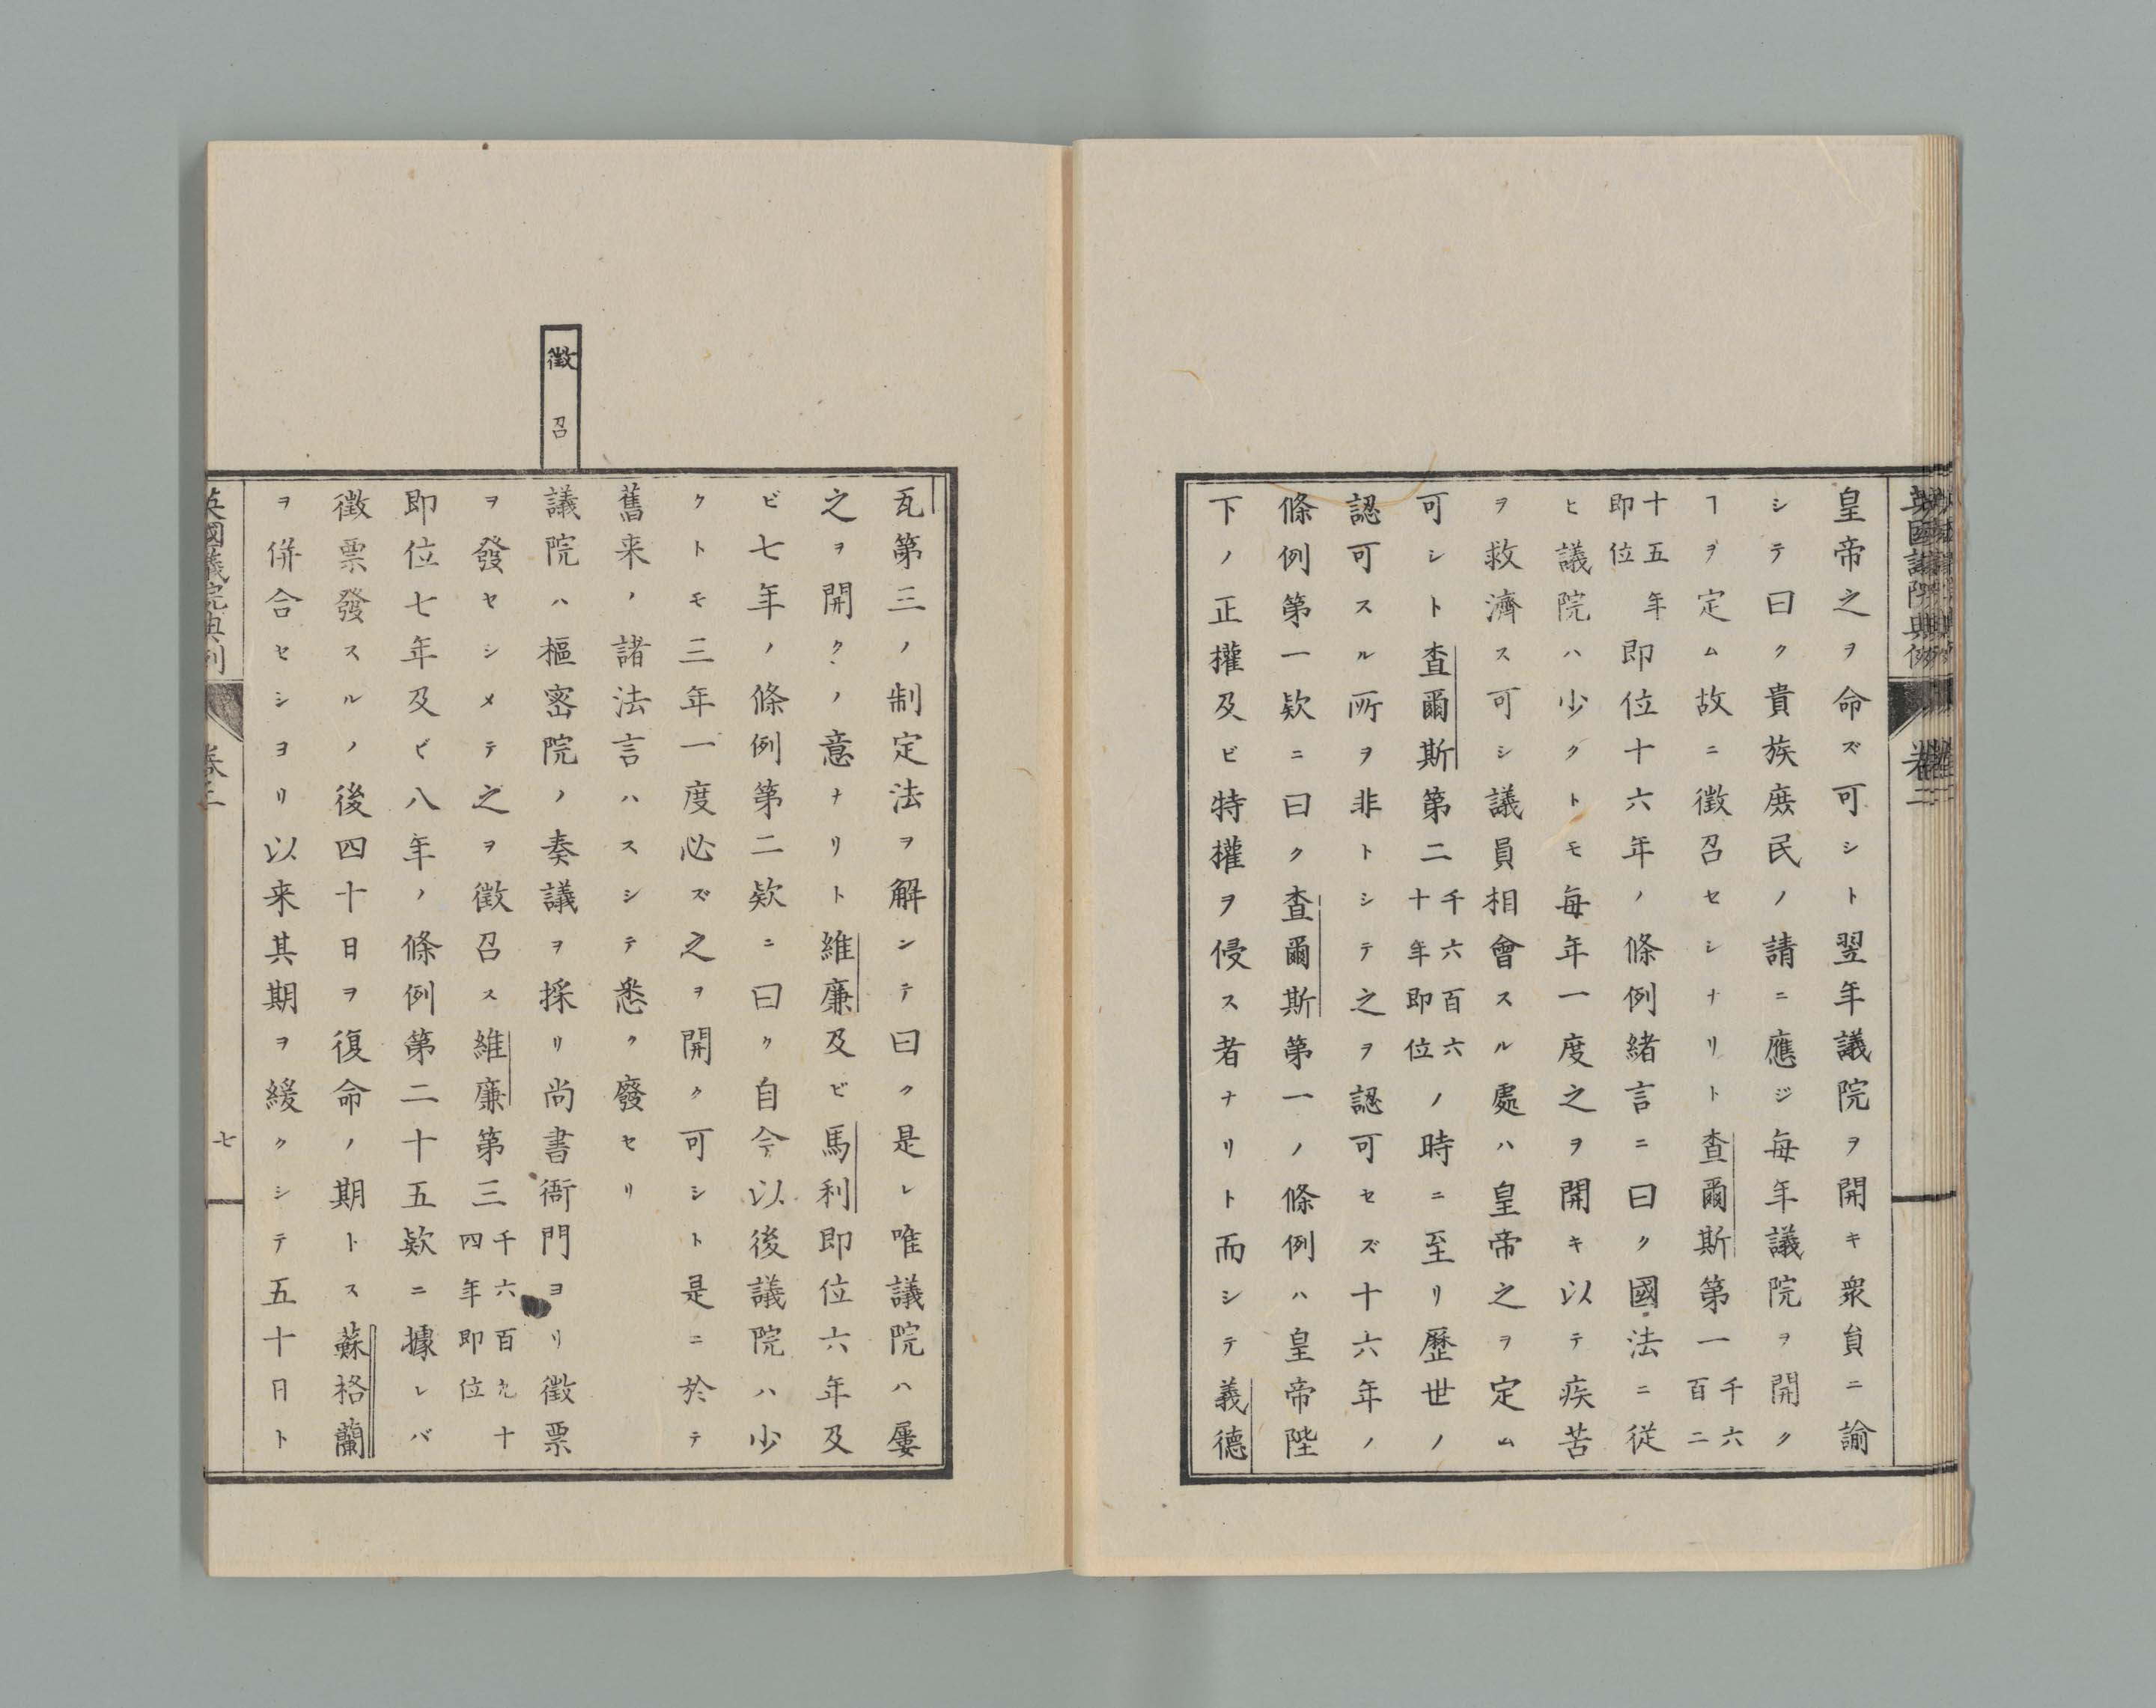 英國議院典例
卷二
皇帝之ヲ命ズ可シト翌年議院ヲ開キ衆員ニ諭
シテ曰ク貴族庶民ノ請ニ應ジ每年議院ヲ開ク
ヿヲ定ム故ニ徵召セシナリト查爾斯第一千六百二
十五年即位即位十六年ノ條例緒言ニ曰ク國法ニ従
ヒ議院ハ少クトモ每年一度之ヲ開キ以テ疾苦
ヲ救濟ス可シ議員相會スル處ハ皇帝之ヲ定ム
可シト查爾斯第二千六百六十年即位ノ時ニ至リ歷世ノ
認可スル所ヲ非トシテ之ヲ認可セズ十六年ノ
條例第一欵ニ曰ク查爾斯第一ノ條例ハ皇帝陛
下ノ正權及ビ特權ヲ侵ス者ナリト而シテ義德
瓦第三ノ制定法ヲ解シテ曰ク是レ唯議院ハ屢
之ヲ開クノ意ナリト維廉及ビ馬利即位六年及
ビ七年ノ條例第二欵ニ曰ク自今以後議院ハ少
クトモ三年一度必ズ之ヲ開ク可シト是ニ於テ
舊来ノ諸法言ハスシテ悉ク廢セリ
徵召
議院ハ樞密院ノ奏議ヲ採リ尚書衙門ヨリ徵票
ヲ發セシメテ之ヲ徵召ス維廉第三千六百九十四年即位
即位七年及ビ八年ノ條例第二十五欵ニ據レバ
徵票發スルノ後四十日ヲ復命ノ期トス蘇格蘭
ヲ併合セシヨリ以来其期ヲ緩クシテ五十日ト
英國議院典例
七